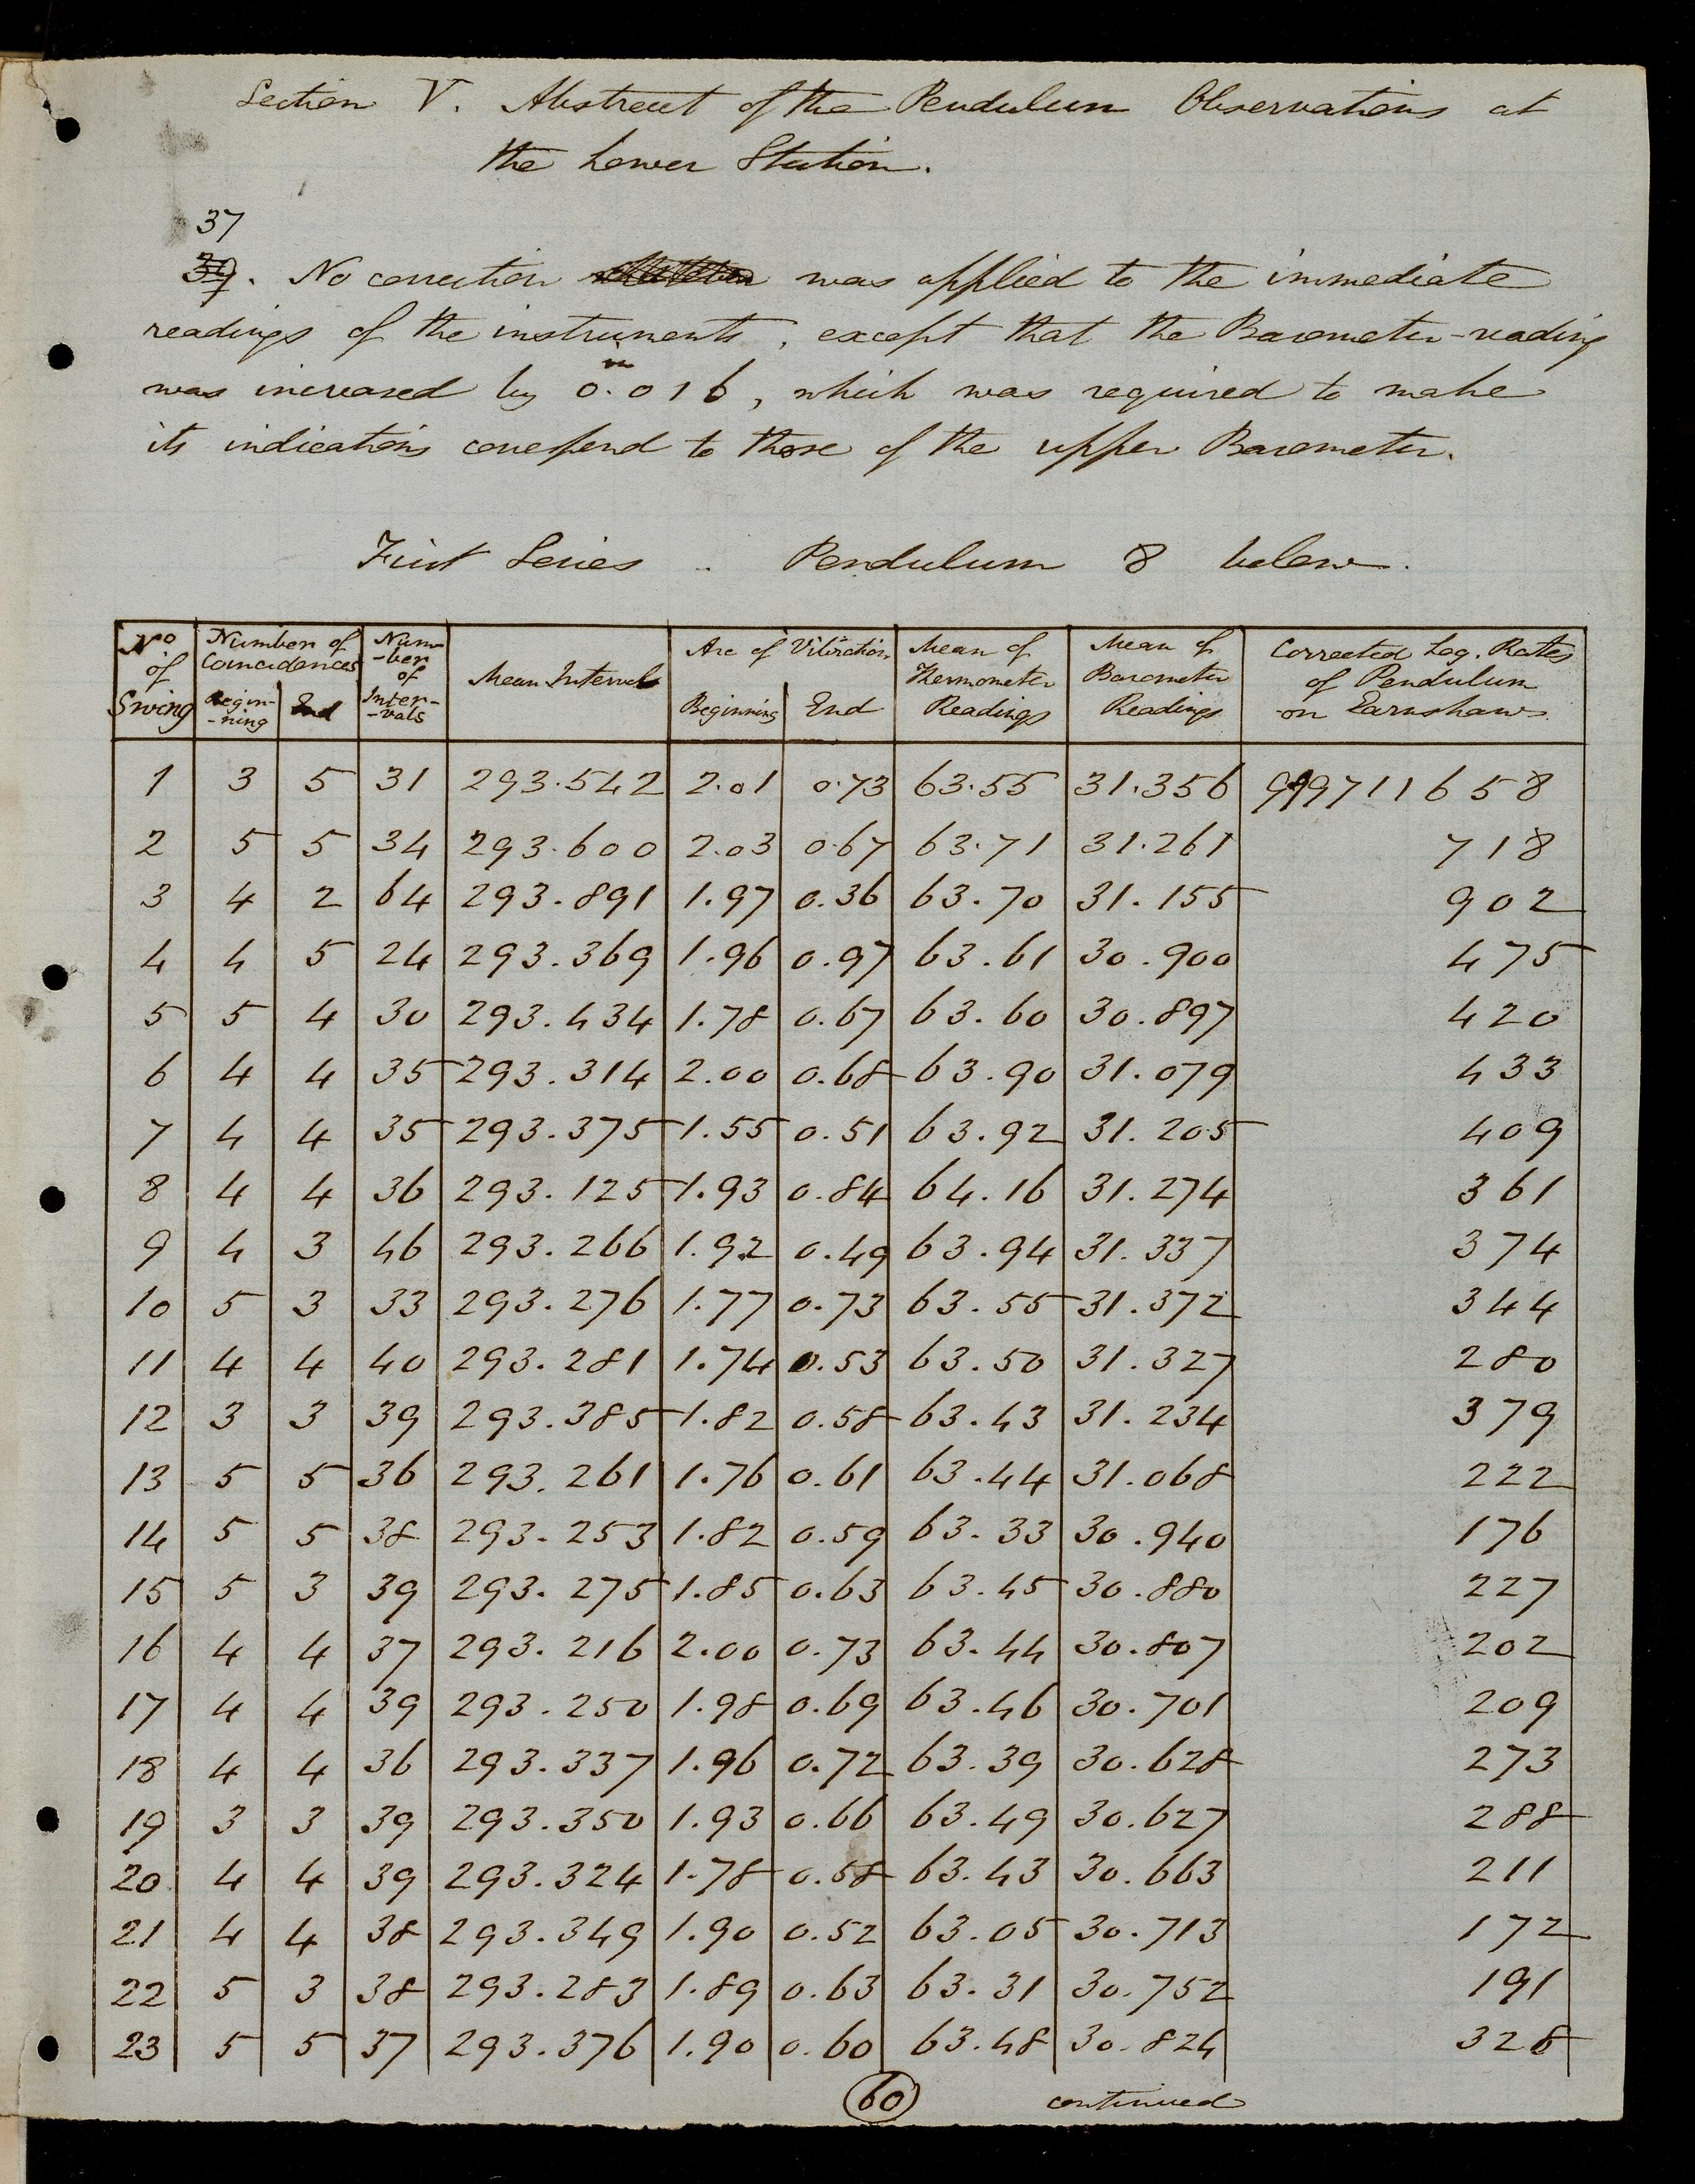 Section V. Abstract of the Pendulum Observations at
the Lower Station.
37
39. No correction was applied to the immediate
readings of the instruments, except that the Barometer-reading
was increased by 0.016, which was required to make
its indications correspond to those of the upper Barometer.
First Series .. Pendulum 8 below.
No of Swing | Number of Coincidences Beginning | End | Number of Intervals | Mean Interval | Arc of Vibration Beginning | End | Mean of Thermometer Readings | Mean of Barometer Readings | Corrected Log. Rates of Pendulum on Earnshaw
1 3 5 31 293.542 2.01 0.73 63.55 31.356 9.99711658
2 5 5 34 293.600 2.03 0.67 63.71 31.261 718
3 4 2 64 293.891 1.97 0.36 63.70 31.155 902
4 4 5 24 293.369 1.96 0.97 63.61 30.900 475
5 5 4 30 293.434 1.78 0.67 63.60 30.897 420
6 4 4 35 293.314 2.00 0.68 63.90 31.079 433
7 4 4 35 293.375 1.55 0.51 63.92 31.205 409
8 4 4 36 293.125 1.93 0.84 64.16 31.274 361
9 4 3 46 293.266 1.92 0.49 63.94 31.337 374
10 5 3 33 293.276 1.77 0.73 63.55 31.372 344
11 4 4 40 293.281 1.74 0.53 63.50 31.327 280
12 3 3 39 293.385 1.82 0.58 63.43 31.234 379
13 5 5 36 293.261 1.76 0.61 63.44 31.068 222
14 5 5 38 293.253 1.82 0.59 63.33 30.940 176
15 5 3 39 293.275 1.85 0.63 63.45 30.880 227
16 4 4 37 293.216 2.00 0.73 63.44 30.807 202
17 4 4 39 293.250 1.98 0.69 63.46 30.701 209
18 4 4 36 293.337 1.96 0.72 63.39 30.628 273
19 3 3 39 293.350 1.93 0.66 63.49 30.627 288
20 4 4 39 293.324 1.78 0.58 63.43 30.663 211
21 4 4 38 293.349 1.90 0.52 63.05 30.713 172
22 5 3 38 293.283 1.89 0.63 63.31 30.752 191
23 5 5 37 293.376 1.90 0.60 63.48 30.824 328
60 continued